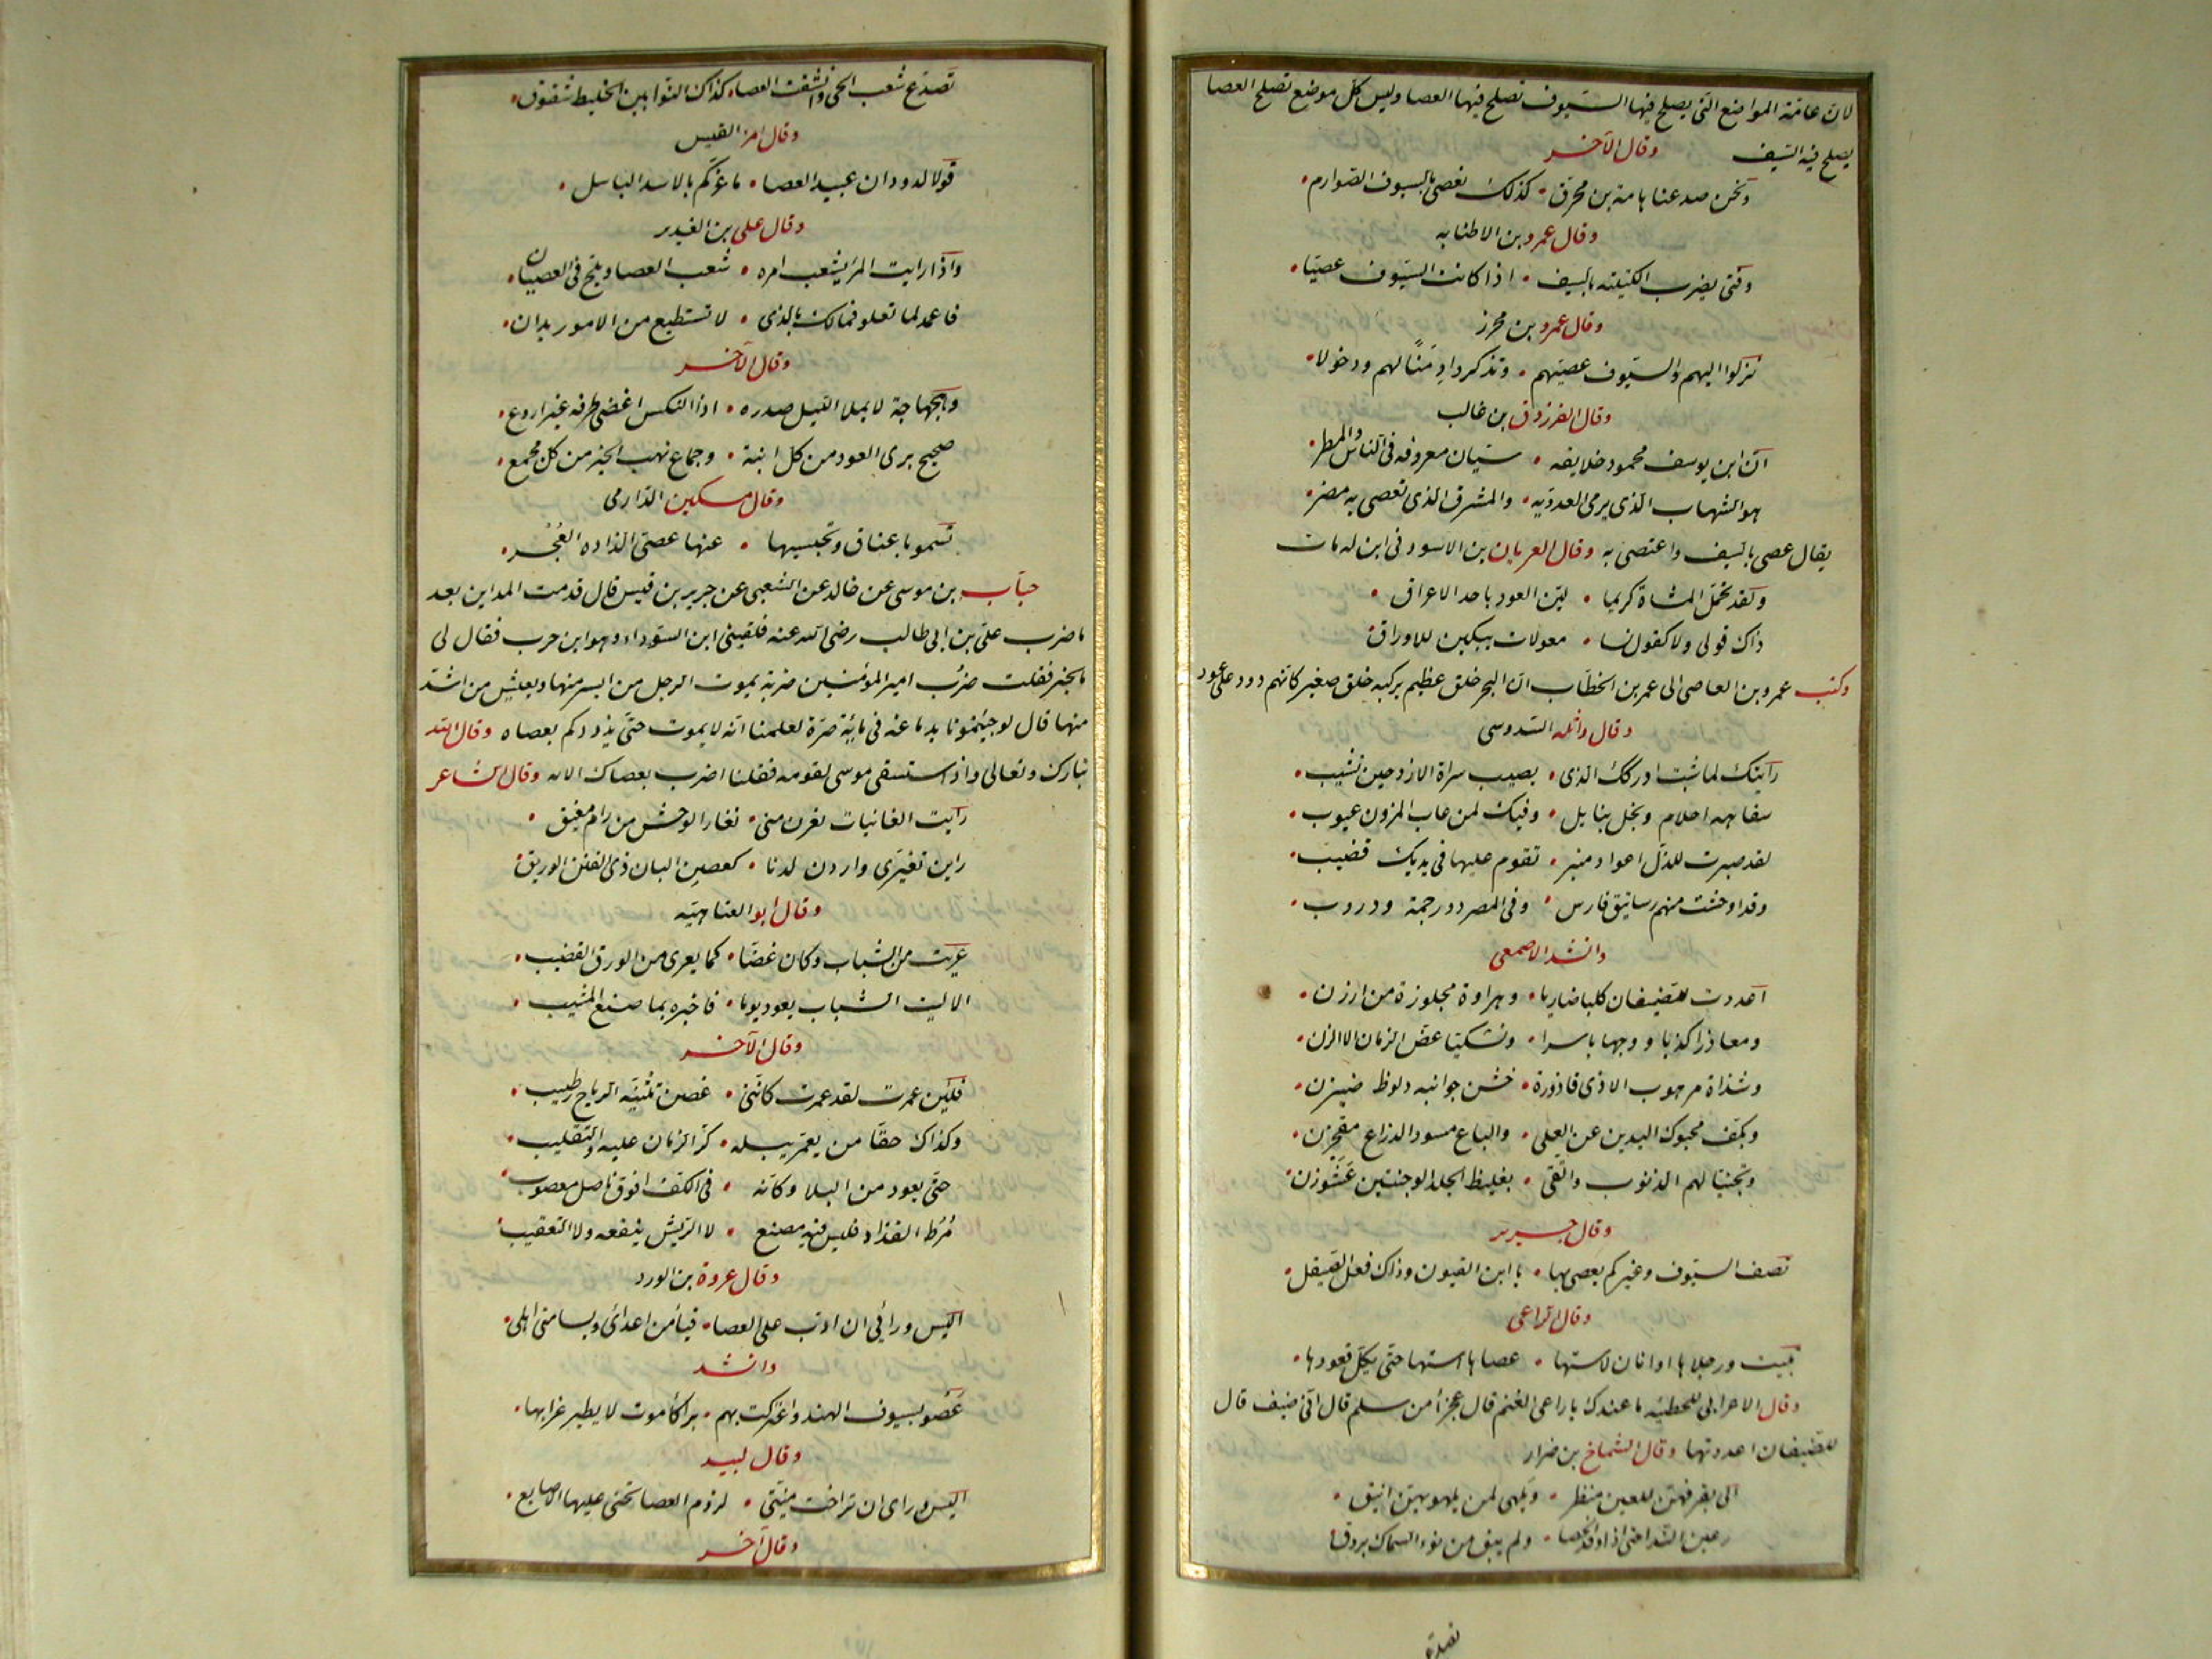 لان عامة المواضع التى يصلح فيها السيوف تصلح فيها العصا وليس كل موضع تصلح العصا
يصلح فيه السيف وقال الآخر
ونحن صدعنا هامة بن محرق • كذلك نعصى بالسيوف الصوارم •
وقال عمرو بن الاطنابه
وفتى يضرب الكتيبته بالسيف • اذا كانت السيوف عصيّا •
وقال عمرو بن محرز
نزلوا اليهم والسيوف عصيهم • وتذكروا دمنًا لهم ودخولا •
وقال الفرزدق بن غالب
ان ابن يوسف محمود خلايقه • سيان معروفه فى الناس والمطر •
هو الشهاب الذى يرمى العدو به • والمشرق الذى تعصى به مضر •
يقال عصى بالسيف واعتصى به وقال العريان بن الاسود فى ابن له مات
ولقد تحمل المشاة كريما • لين العود باحد الاعراق •
ذاك قولى ولا كقول نسا • معولات يبكين للاوراق
وكتب عمرو بن العاصى الى عمر بن الخطاب ان البحر خلق عظيم يركبه خلق صغير كانهم دود على عود
وقال واثله السدوسى
رايتك لما شبت ادركك الذى • يصيب سراة الازد حين تشيب •
سفاهه احلام وبخل بنايل • وفيك لمن عاب المزون عيوب •
لقد صبرت للذل اعواد منبر • تقوم عليها فى يديك قضيب •
وقد اوحشت منهم رساتيق فارس • وفى المصر دور جمة ودروب •
وانشد الاصمعى
اعددت للضيفان كلبا ضاريا • وهراوة مجلوزة من ارزن •
ومعاذرا كذبا ووجها باسرا • وتشكيا عض الزمان الالزن •
وشذاة مرهوب الاذى قاذورة • خشن جوانبه دلوظ ضيزن •
وبكف محبوك اليدين عن العلى • والباع مسود الذراع مقحزن •
وتجنيا لهم الذنوب واتقى • بغليظ الجلد الوجنتين عشوزن •
وقال جرير
تصف السيوف وغيركم يعصى بها • يا ابن القيون وذاك فعل الصيقل •
وقال الراعى
تبيت ورجلاها اوانان لاستها • عصاها استها حتى يكل قعودها •
وقال الاعرابى للحطيئه ما عندك يا راعى الغنم قال عجرا من سلم قال انى ضيف قال
للضيفان اعددتها وقال الشماخ بن ضرار
الى بقر فيهن للعين منظر • وملهى لمن يلهو بهن انيق •
رعين الندا حتى اذا وقد الحصا • ولم يبق من نوء السماك بروق
تصدع
تصدع شعب الحى وانشقت العصا • كذاك النوا بين الخليط شقوق •
وقال امرؤ القيس
قولا لدودان عبيد العصا • ما غركم بالاسد الباسل •
وقال على بن الغدير
واذا رايت المرء يشعب امره • شعب العصا ويلج فى العصيان •
فاعمد لما تعلو فمالك بالذى • لا تستطيع من الامور يدان •
وقال الآخر
وهجهاجة لا يملا الليل صدره • اذا النكس اغضى طرفه غير اروع •
صحيح برى العود من كل ابنة • وجماع نهب الخير من كل مجمع •
وقال مسكين الدارمى
تسمو باعناق وتحبسها • عنها عصى الذاده العُجر •
حباب بن موسى عن خالد عن الشعبى عن جرير بن قيس قال قدمت المداين بعد
ما ضرب على بن ابى طالب رضى الله عنه فلقينى ابن السوداء وهو ابن حرب فقال لى
ما الخبر فقلت ضرب امير المؤمنين ضربة يموت الرجل من ايسر منها ويعيش من اشد
منها قال لو جيتمونا بدماغه فى ماية صرة لعلمنا انه لا يموت حتى يذودكم بعصاه وقال الله
تبارك وتعالى واذ استسقى موسى لقومه فقلنا اضرب بعصاك الايه وقال الشاعر
رايت الغانيات نفرن منى • نفار الوحش من رام مفيق •
راين تغيرى واردن لدنا • كغصن البان ذى الفنن الوريق
وقال ابو العتاهيه
عريت من الشباب وكان غضا • كما يعرى من الورق القضيب •
الا ليت الشباب يعود يوما • فاخبره بما صنع المشيب •
وقال الآخر
فلئن عمرت لقد عمرت كاننى • غصن تثنيه الرياح رطيب •
وكذاك حقا من يعمر يبله • كر الزمان عليه والتقليب •
حتى يعود من البلا وكانه • فى الكف افوق ناصل معصوب •
مُرُط القذاذ فليس فيه مصنع • لا الريش ينفعه ولا التعقيب
وقال عروة بن الورد
اليس ورائى ان ادب على العصا • فيامن اعدائى ويسامنى اهلى •
وانشد
عصو بسيوف الهند واعتركت بهم • براكا موت لا يطير غرابها •
وقال لبيد
اليس وراى ان تراخت منيتى • لزوم العصا تحنى عليها الاصابع •
وقال آخر